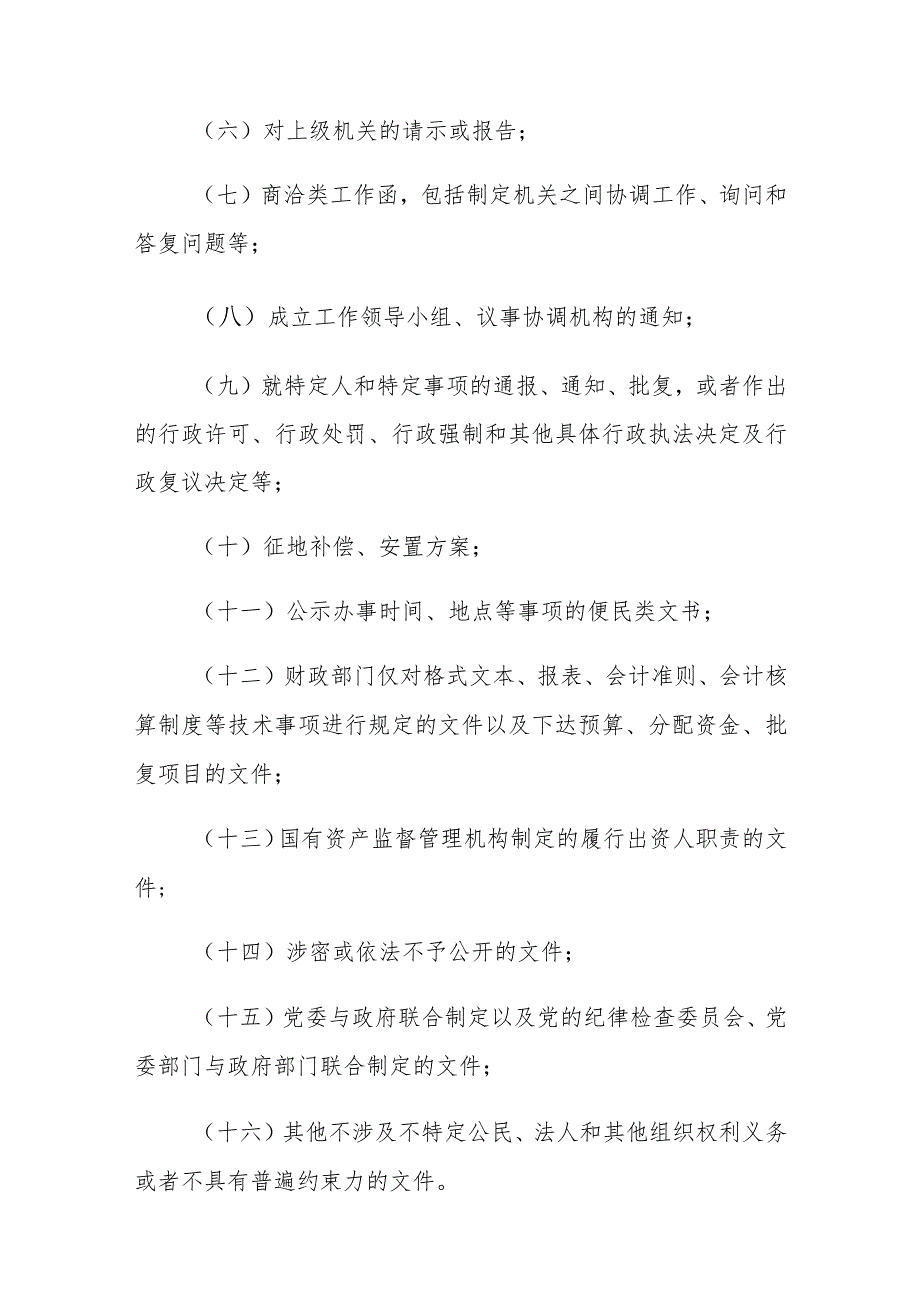 （六）对上级机关的请示或报告；
（七）商洽类工作函，包括制定机关之间协调工作、询问和
答复问题等；
（八）成立工作领导小组、议事协调机构的通知；
（九）就特定人和特定事项的通报、通知、批复，或者作出
的行政许可、行政处罚、行政强制和其他具体行政执法决定及行
政复议决定等；
（十）征地补偿、安置方案；
（十一）公示办事时间、地点等事项的便民类文书；
（十二）财政部门仅对格式文本、报表、会计准则、会计核
算制度等技术事项进行规定的文件以及下达预算、分配资金、批
复项目的文件；
（十三）国有资产监督管理机构制定的履行出资人职责的文
件；
（十四）涉密或依法不予公开的文件；
（十五）党委与政府联合制定以及党的纪律检查委员会、党
委部门与政府部门联合制定的文件；
（十六）其他不涉及不特定公民、法人和其他组织权利义务
或者不具有普遍约束力的文件。